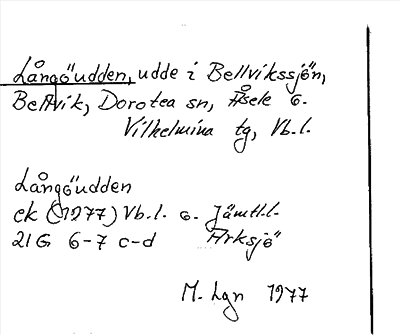 Långöudden, udde i Bellvikssjön,
Bellvik, Dorotea sn, Åsele o.
Vilhelmina tg, Vb.l.
Långöudden
ek (1977) Vb.l. o. Jämtl.l.
21G 6-7 c-d Arksjö
M. Lgn 1977